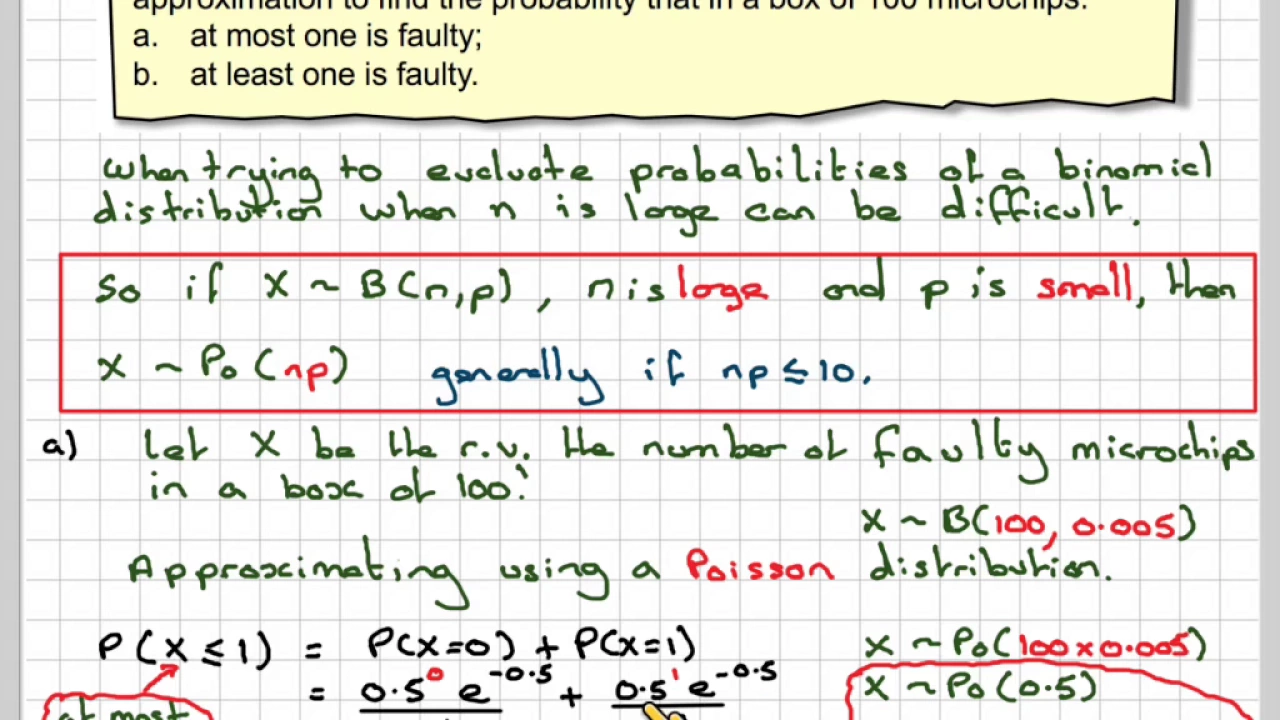 approximation to find the probability that in a box of 100 microchips:
a. at most one is faulty;
b. at least one is faulty.
When trying to evaluate probabilities of a binomial
distribution when n is large can be difficult.
So if X ~ B(n,p), n is large and p is small, then
X ~ Po(np) generally if np ≤ 10.
a) Let X be the r.v. 'the number of faulty microchips
in a box of 100'.
X ~ B(100, 0.005)
Approximating using a Poisson distribution.
P(X ≤ 1) = P(X=0) + P(X=1)
X ~ Po(100 x 0.005)
= 0.5⁰ e^-0.5 + 0.5¹ e^-0.5
X ~ Po(0.5)
at most